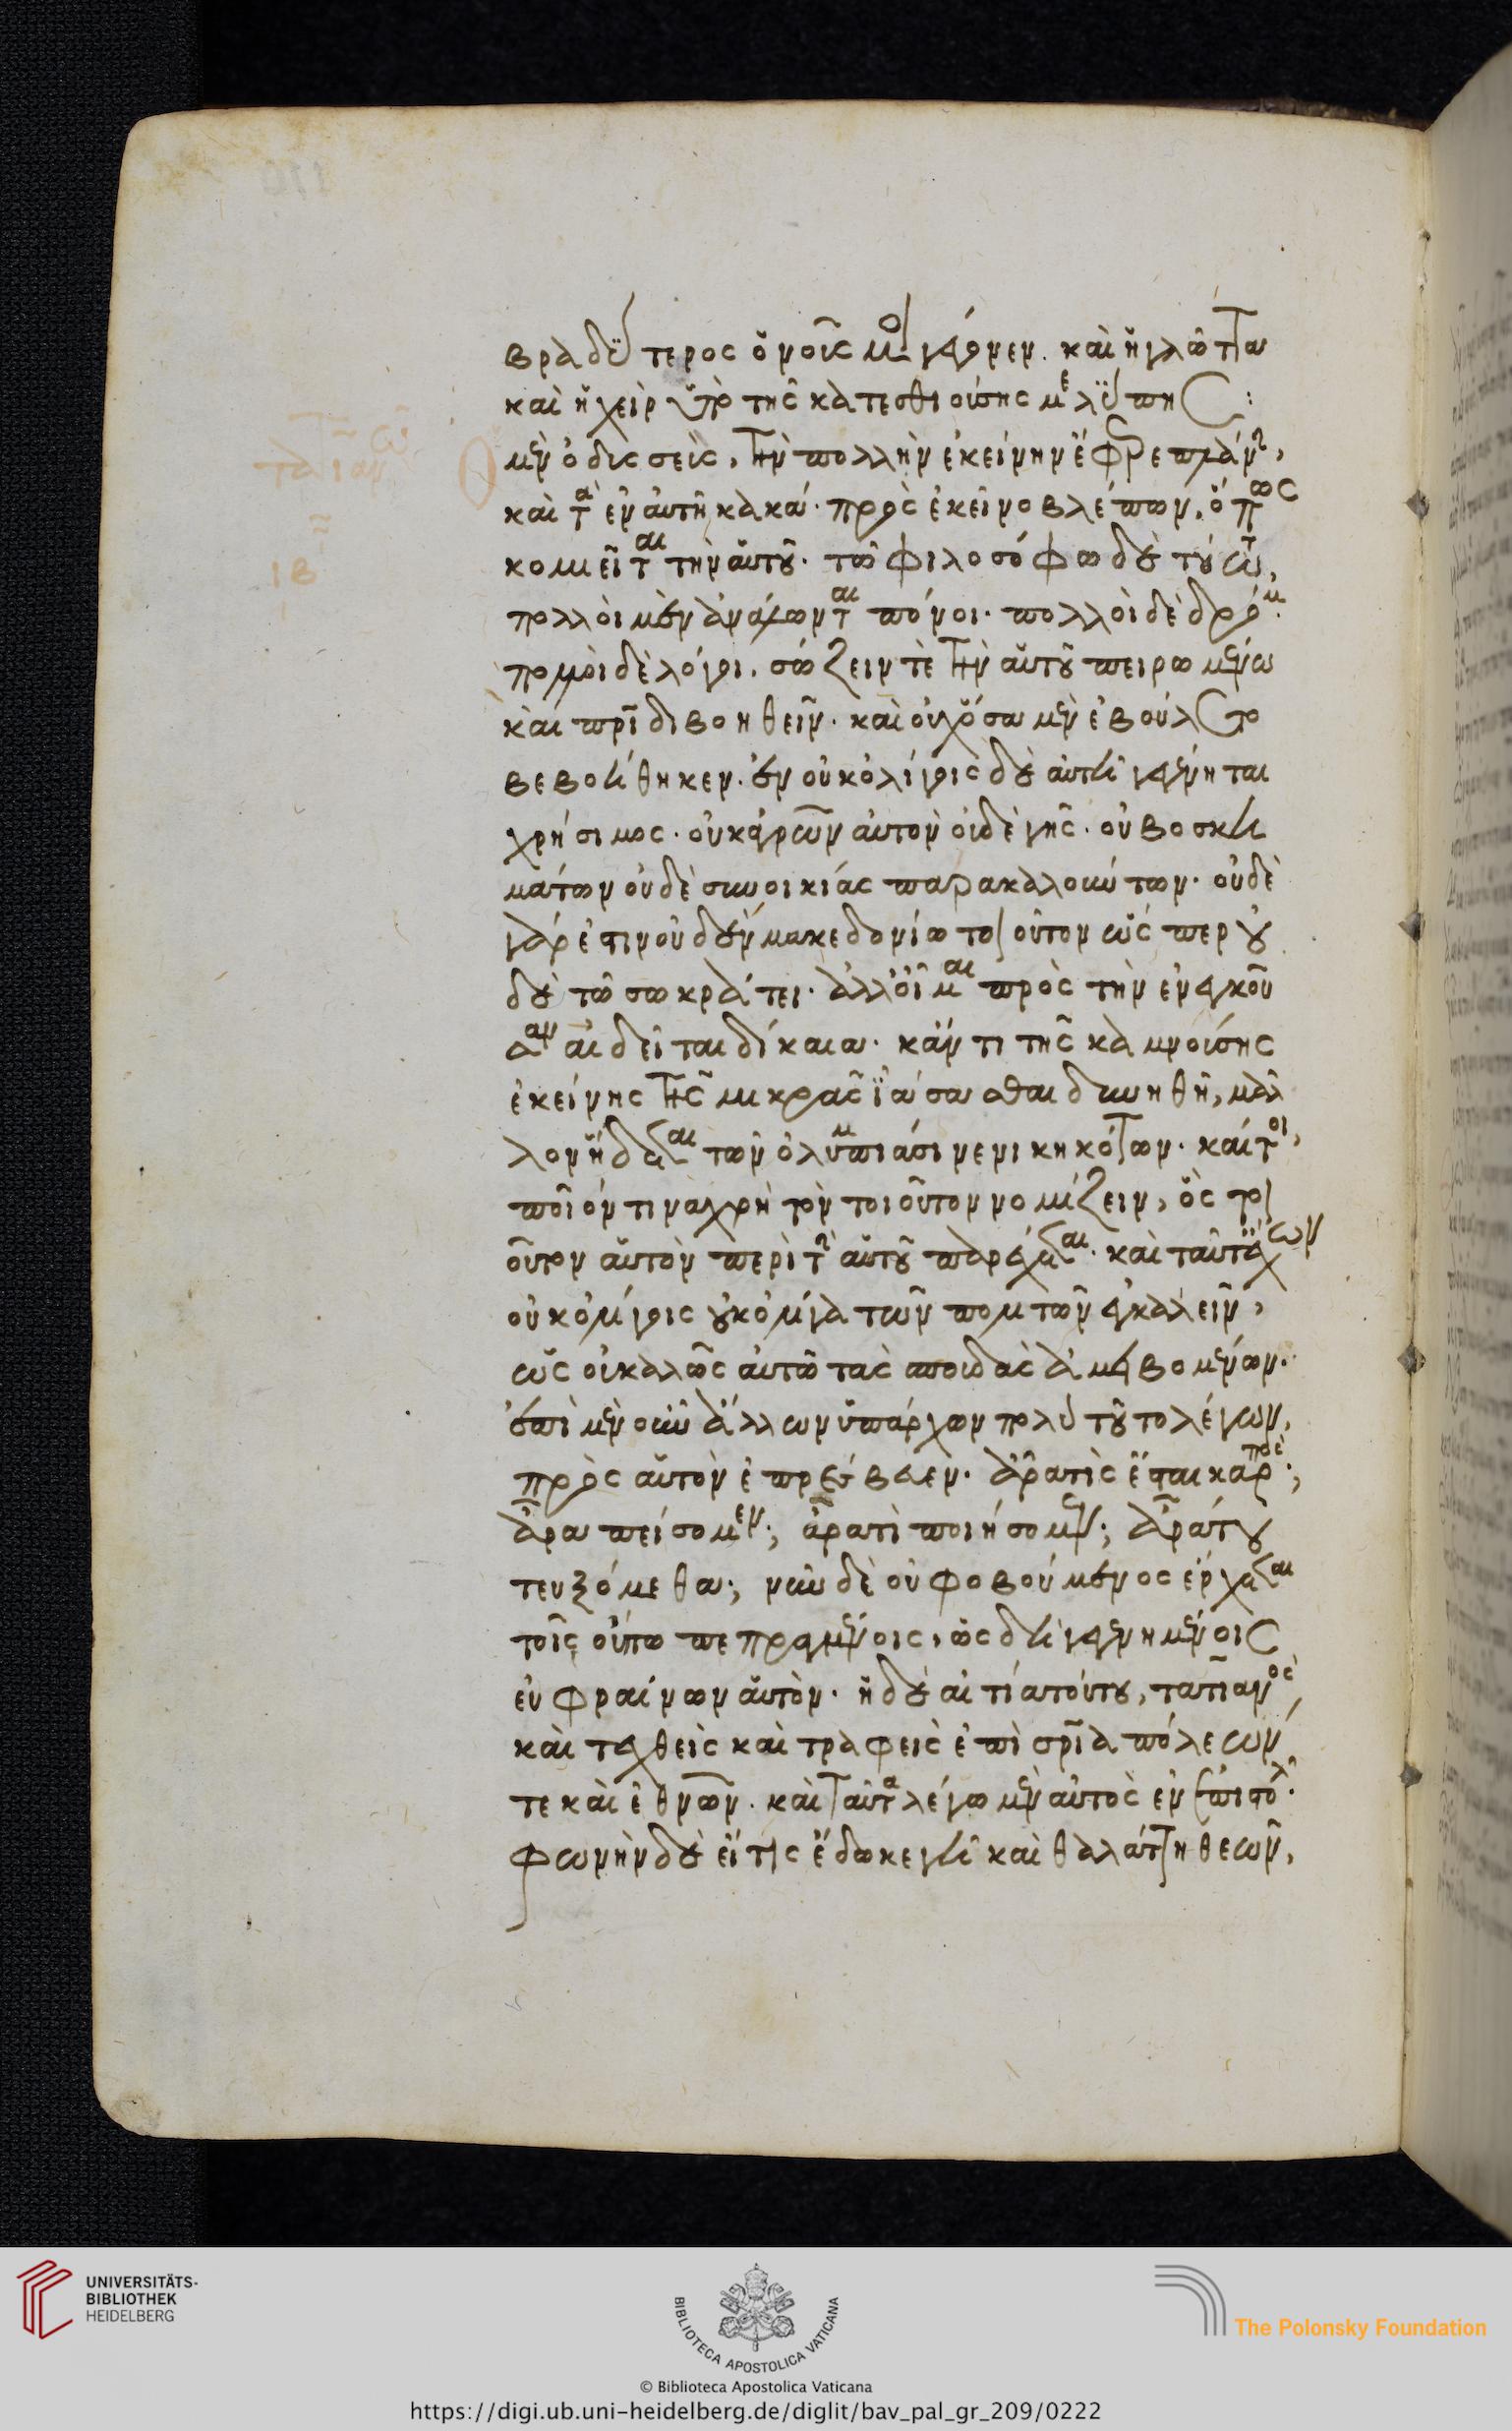 βραδύτερος ὁ νοῦς μοι γέγονεν. καὶ ἡ γλῶττα
καὶ ἡ χεὶρ ὑπὸ τῆς κατεσθιούσης με λύπης:
Τατιανῶ
ιβ
Ὁ μὲν ὀδυσσεὺς, τὴν πολλὴν ἐκείνην ἔφερε πλάνην,
καὶ τὰ ἐν αὐτῆ κακά. πρὸς ἐκεῖνο βλέπων, ὅπως
κομιεῖται τὴν αὑτοῦ. τῶ φιλοσόφω δὲ τούτω,
πολλοὶ μὲν ἀνάλωνται πόνοι. πολλοὶ δὲ δρόμοι.
πολλοὶ δὲ λόγοι. σώζειν τὲ τὴν αὑτοῦ πειρωμένω
καὶ πατρίδι βοηθεῖν. καὶ οὐχ ὅσα μὲν ἐβούλετο
βεβοήθηκεν. ἐν οὐκ ὀλίγοις δὲ αὐτῆ γεγένηται
χρήσιμος. οὐκ ἐρώτων αὐτὸν οὐδὲ γῆς. οὐ βοσκη
μάτων οὐδὲ συνοικίας παρακαλούντων. οὐδὲ
γάρ ἐστιν οὐδὲν μακεδονίω τοιοῦτον ὥσπερ οὐ
δὲ τῶ σωκράτει. ἀλλ' οἶμαι πρὸς τὴν ἐνεγκοῦ
σαν αἰδεῖται δίκαια. κἄν τι τῆς καμνούσης
ἐκείνης τῆς μικρᾶς ἰάσασθαι δυνηθῆ, μᾶλ
λον ἥδεται τῶν ὀλυμπιάσι νενικηκότων. καίτοι,
ποῖόν τινα χρὴ τὸν τοιοῦτον νομίζειν, ὃς τοι
οῦτον αὑτὸν περὶ τὴν αὑτοῦ παρέχεται. καὶ ταῦτα ἔχων
οὐκ ὀλίγοις οὐκ ὀλίγα τῶν πολιτῶν ἐγκαλεῖν,
ὡς οὐ καλῶς αὐτῶ τὰς σπουδὰς ἀμειβομένων.
ἐπὶ μὲν οὖν ἄλλων ὑπάρχων πολὺ τοῦτο λέγων,
πρὸς αὑτὸν ἐπρέσβευεν. ἆρά τις ἔσται καρπός;
ἆρα πείσομεν; ἆρά τι ποιήσομεν; ἆρά του
τευξόμεθα; νῦν δὲ οὐ φοβούμενος ἔρχεται
τοῖς οὔπω πεπραγμένοις, ὡς δὴ γεγενημένοις
εὐφραίνων αὑτόν. ἡ δὲ αἰτία τούτου, τατιανὸς
καὶ τεχθεὶς καὶ τραφεὶς ἐπὶ σωτηρία πόλεών
τε καὶ ἐθνῶν. καὶ ταῦτα λέγω μὲν αὐτὸς ἐν ἐπιστολῆ.
φωνὴν δὲ εἴ τις ἔδωκε γῆ καὶ θαλάττη θεῶν,
UNIVERSITÄTS-
BIBLIOTHEK
HEIDELBERG
BIBLIOTECA APOSTOLICA VATICANA
The Polonsky Foundation
© Biblioteca Apostolica Vaticana
https://digi.ub.uni-heidelberg.de/diglit/bav_pal_gr_209/0222